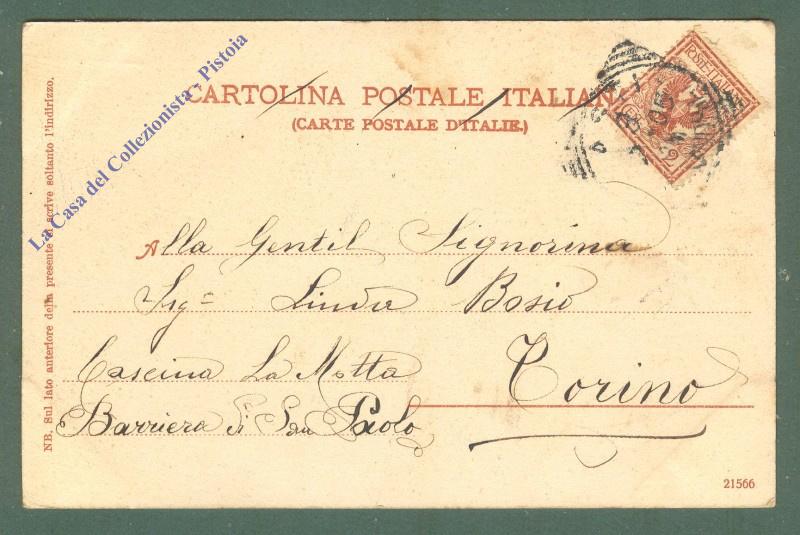 CARTOLINA POSTALE ITALIANA
(CARTE POSTALE D'ITALIE.)
POSTE ITALIANE
La Casa del Collezionista - Pistoia
NB. Sul lato anteriore della presente si scrive soltanto l'indirizzo.
Alla Gentil Signorina
Sigª Linda Bosio
Cascina La Motta
Torino
Barriera di San Paolo
21566